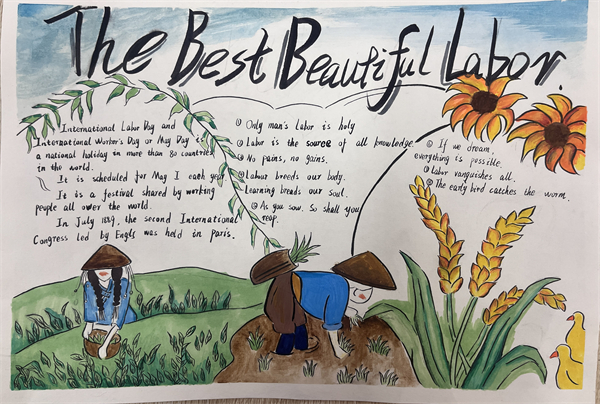 The Best Beautiful Labor.
International Labor Day and
International Worker's Day or May Day is
a national holiday in more than 80 countries
in the world.
It is scheduled for May 1 each year
It is a festival shared by working
people all over the world.
In July 1889, the second International
Congress led by Engls was held in paris.
① Only man's labor is holy
② Labor is the source of all knowledge.
③ No pains, no gains.
④ Labour breeds our body.
Learning breeds our soul.
⑤ As you sow. So shall you
reap.
⑥ If we dream,
everything is possible.
⑦ labor vanquishes all.
⑧ The early bird catches the worm.